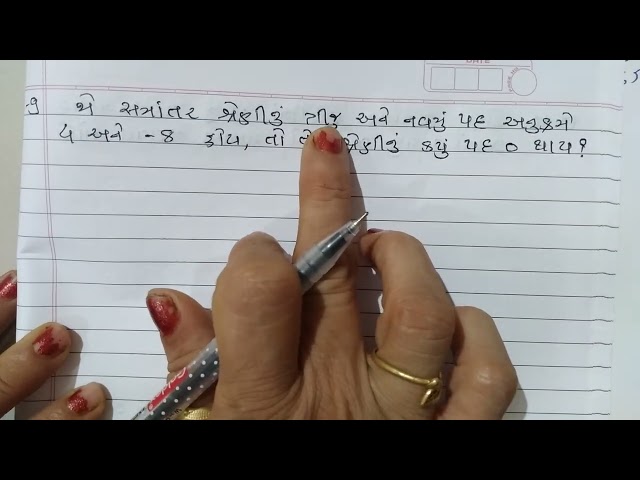 DATE
9 જો સમાંતર શ્રેણીનું ત્રીજુ અને નવમું પદ અનુક્રમે
4 અને -8 હોય, તો શ્રેણીનું કયું પદ 0 થાય?